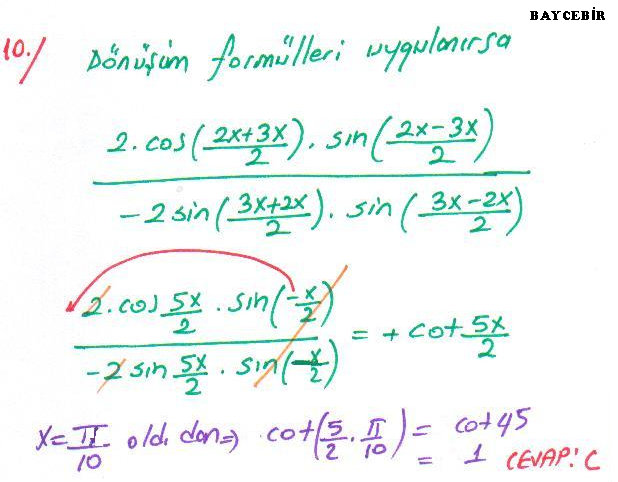 BAYCEBİR
10./ Dönüşüm formülleri uygulanırsa
2.cos(2x+3x/2).sin(2x-3x/2)
-2sin(3x+2x/2).sin(3x-2x/2)
2.cos 5x/2 . sin(-x/2)
-2 sin 5x/2 . sin(-x/2) = + cot 5x/2
x=π/10 old. dan⇒ cot(5/2 . π/10) = cot 45
= 1 CEVAP: C